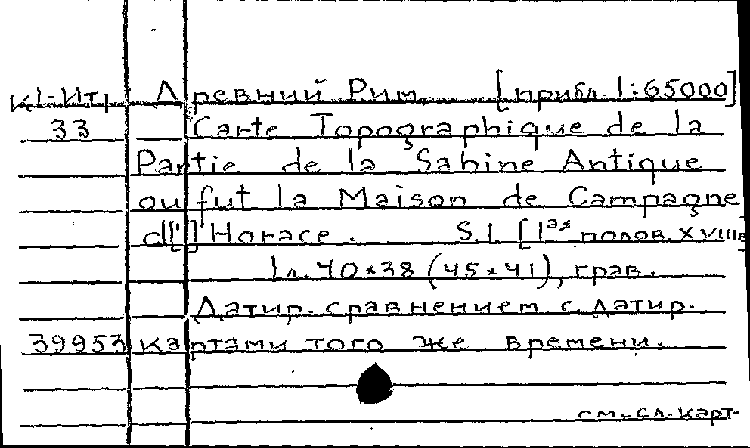 К1-Ит1 Древний Рим. [прибл. 1:65000]
33 Carte Topographique de la
Partie de la Sabine Antique
ou fut la Maison de Campagne
d['] Horace. S.l. [1ая полов. XVIIIв
1 л. 40×38 (45×41), грав.
Датир. сравнением с датир.
39953 картами того же времени.
см. сл. карт.